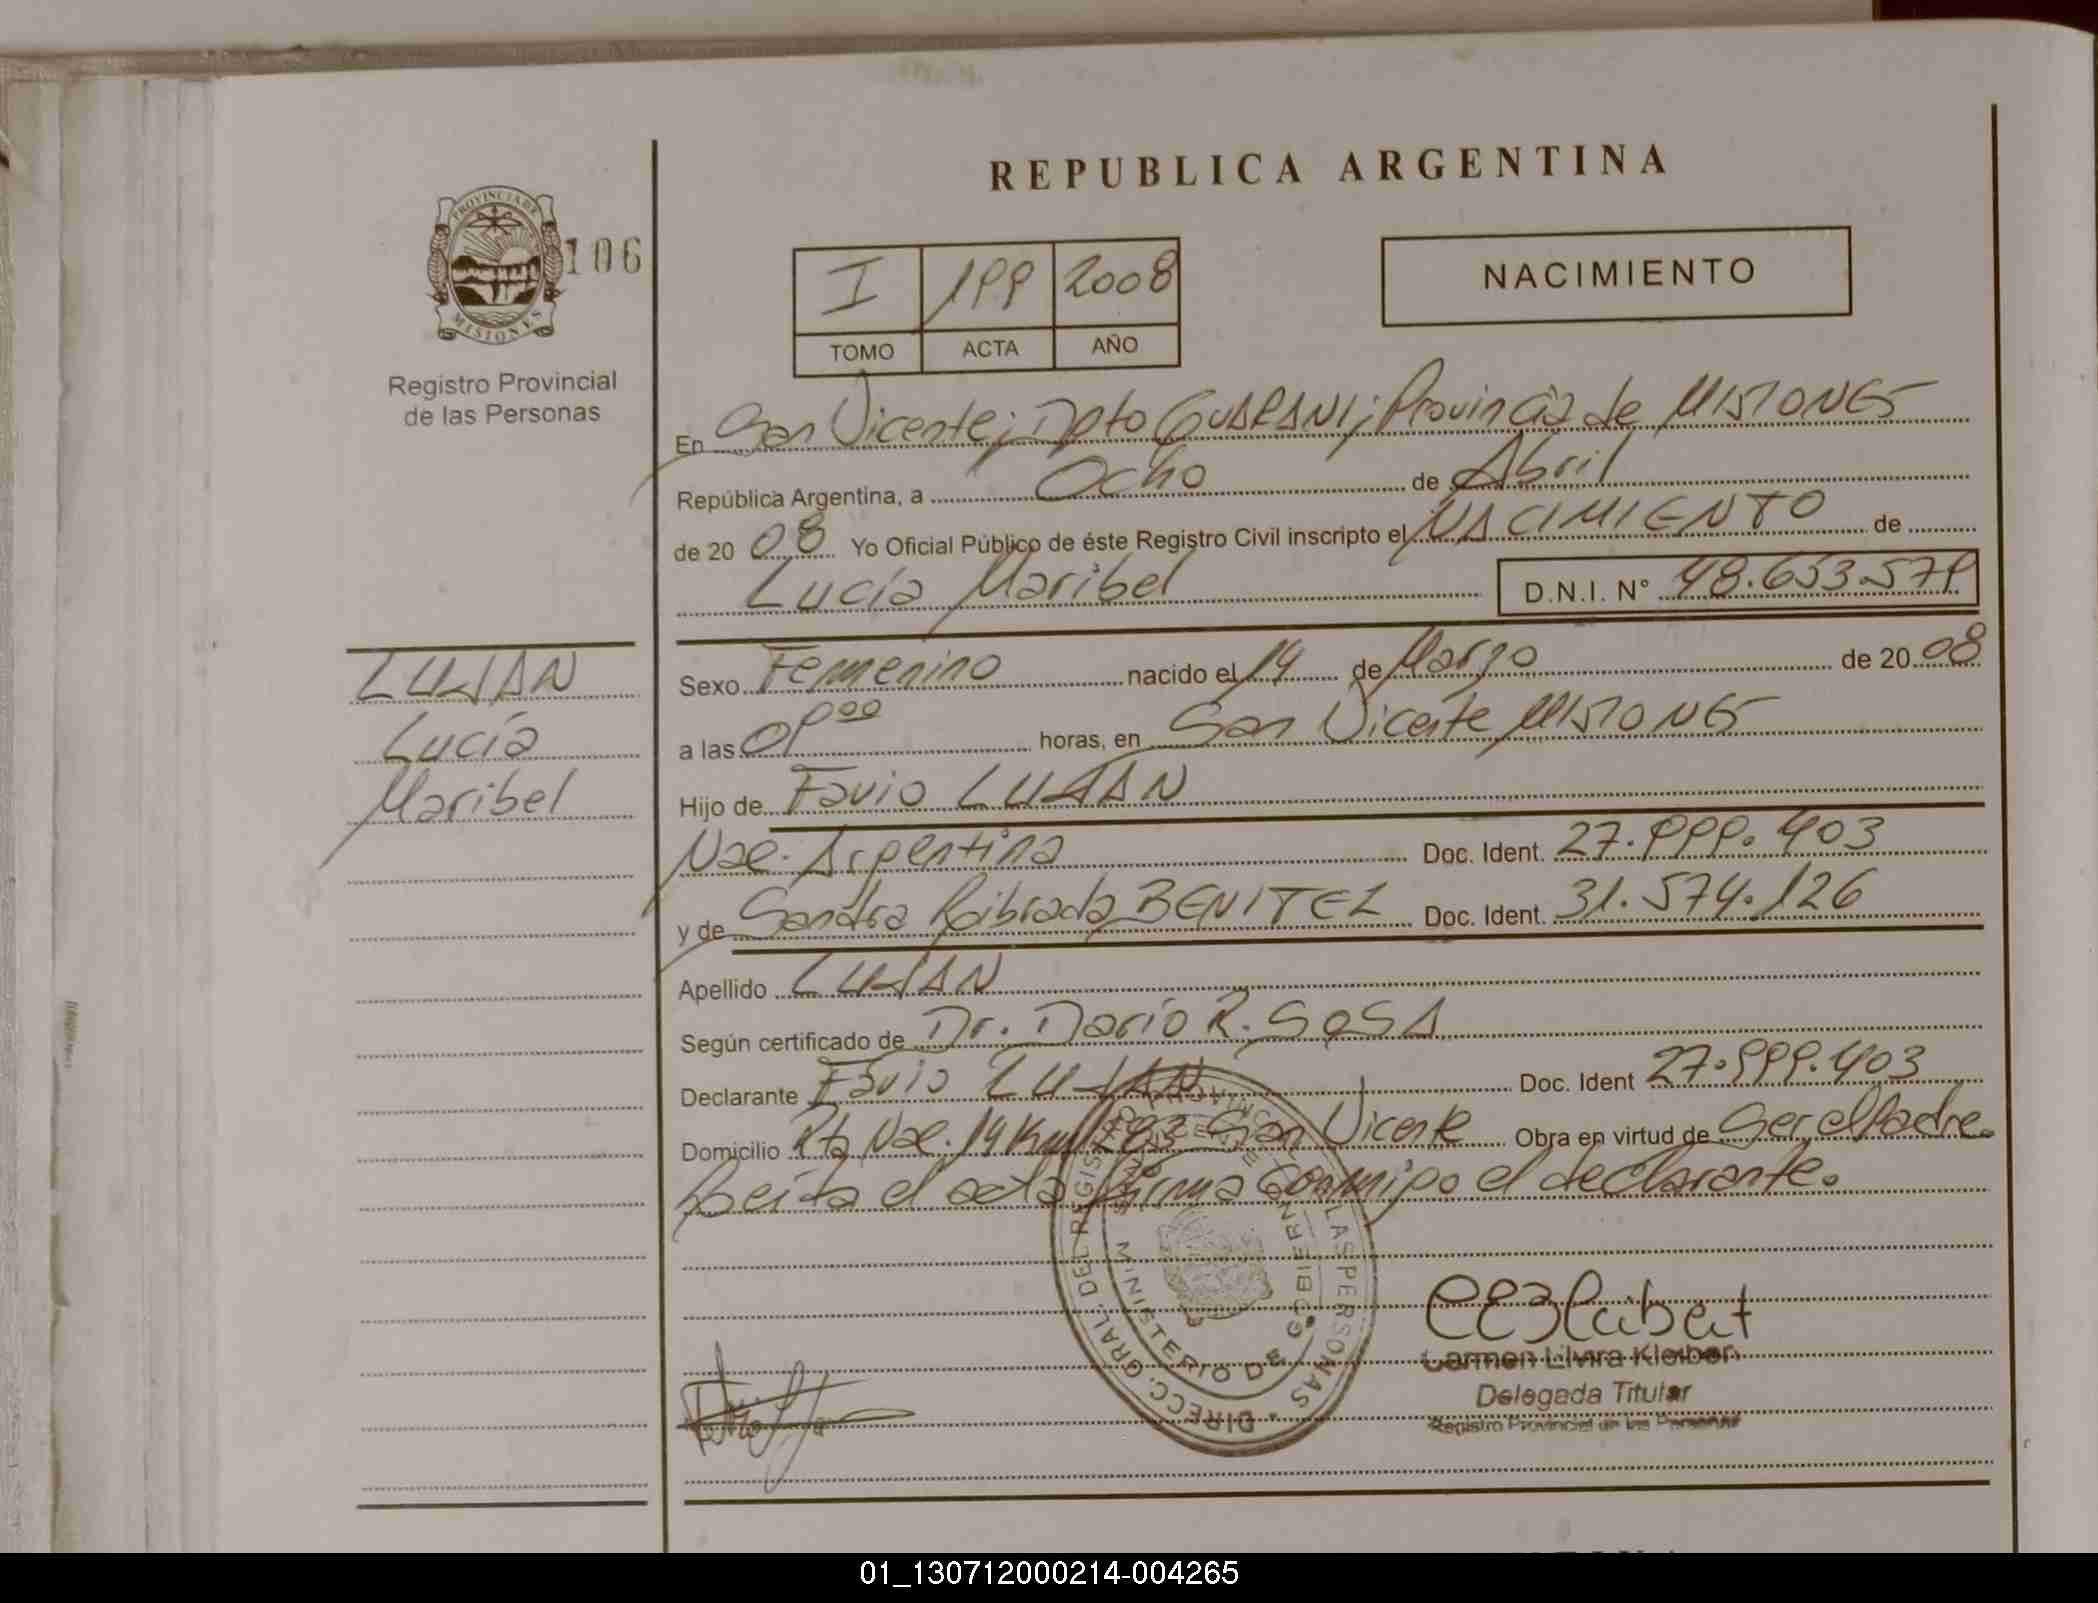 REPUBLICA ARGENTINA
PROVINCIA DE
MISIONES
106
Registro Provincial
de las Personas
I 199 2008
TOMO ACTA AÑO
NACIMIENTO
En San Vicente; Dpto GUARANI; Provincia de MISIONES
República Argentina, a Ocho de Abril
de 2008 Yo Oficial Público de éste Registro Civil inscripto el NACIMIENTO de
Lucía Maribel D.N.I. Nº 48.653.579
LUJAN
Lucía
Maribel
Sexo Femenino nacido el 19 de Marzo de 2008
a las 09⁰⁰ horas, en San Vicente MISIONES
Hijo de Favio LUJAN
Nac. Argentina Doc. Ident. 27.999.403
y de Sandra BENITEZ Doc. Ident. 31.574.126
Apellido LUJAN
Según certificado de Dr. Darío R. SOSA
Declarante Favio LUJAN Doc. Ident 27.999.403
Domicilio Rta Nac. 14 Km San Vicente Obra en virtud de Ser el Padre.
Leída el acta firma conmigo el declarante.
DIRECC. GRAL. DEL REGISTRO PROVINCIAL DE LAS PERSONAS
MINISTERIO DE GOBIERNO
Carmen Elvira Kleiber
Delegada Titular
Registro Provincial de las Personas
01_130712000214-004265